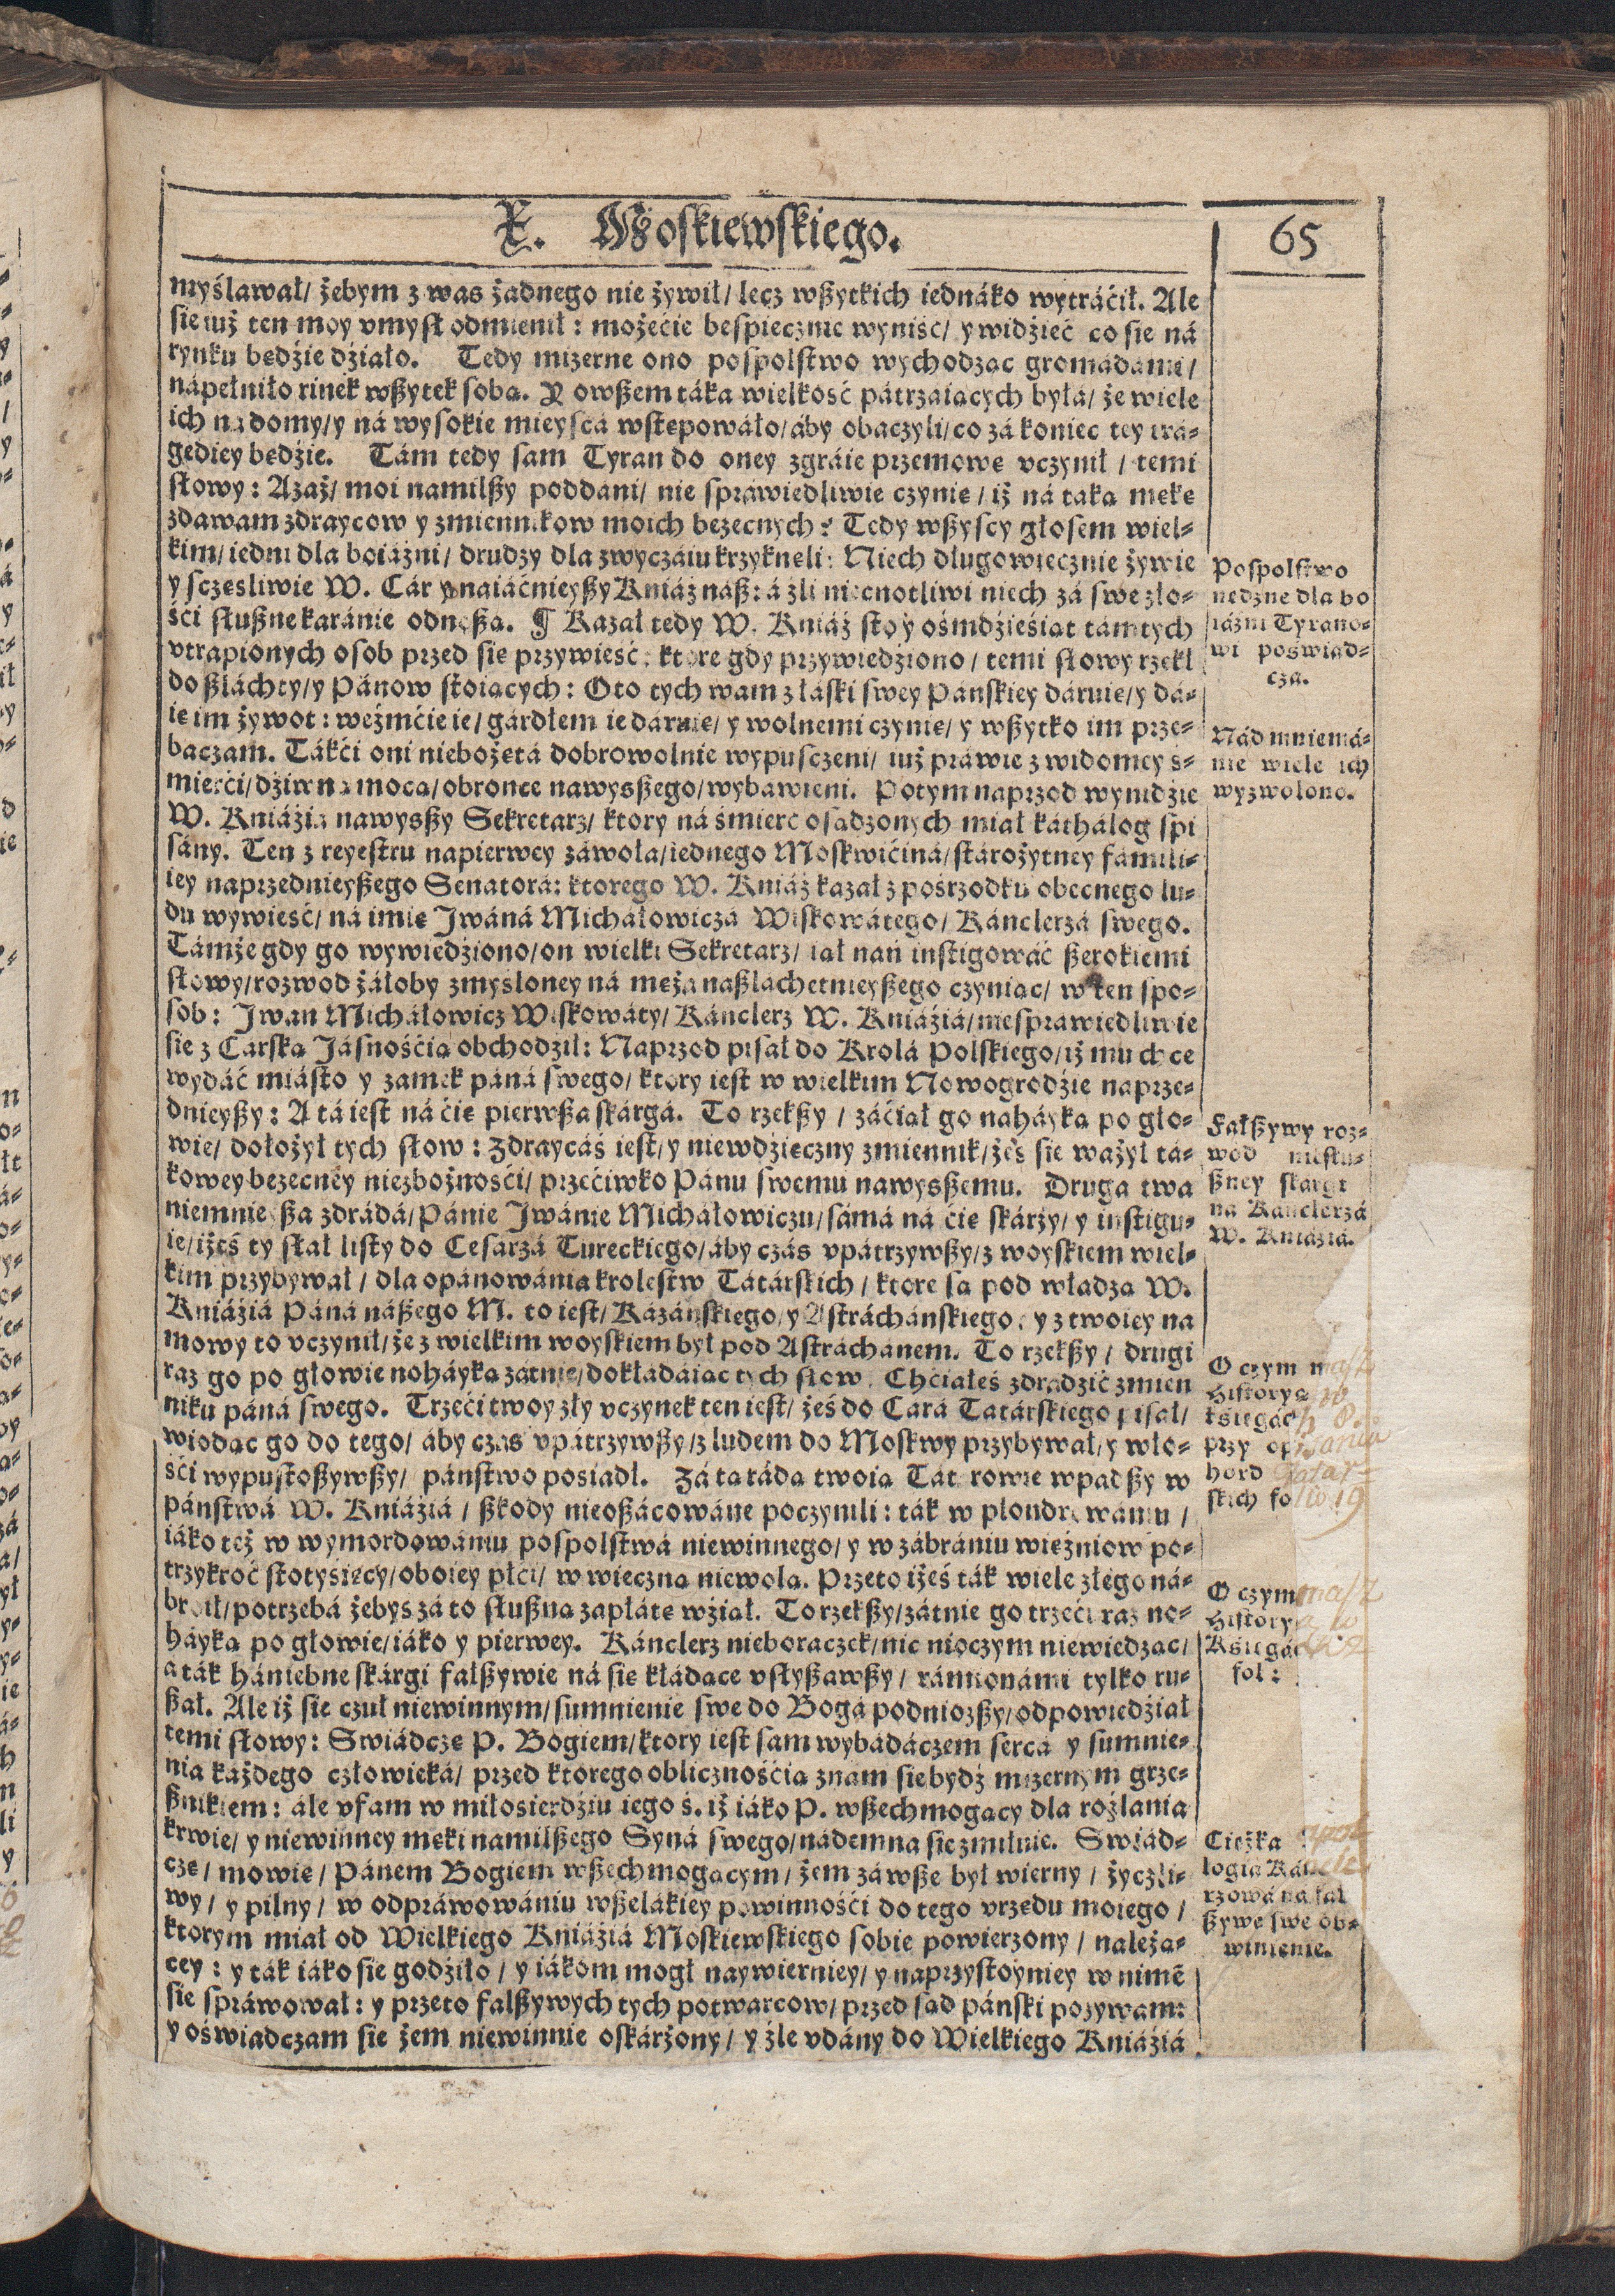 X. Moskiewskiego.
65
myślawał/ żebym z was żadnego nie żywił/ lecz wßytkich iednáko wytráćił. Ale
sie iuż ten moy vmysł odmienił: możećie bespiecznie wyniść/ y widźieć co sie ná
rynku bedźie dźiało. Tedy mizerne ono pospolstwo wychodzac gromádami/
nápełniło rinek wßytek soba. Y owßem táka wielkość pátrzáiacych była/ że wiele
ich na domy/ y ná wysokie mieysca wstepowáło/ áby obaczyli/ co zá koniec tey tra-
gediey bedźie. Tám tedy sam Tyran do oney zgráie przemowe vczynił/ temi
słowy: Azaż/ moi namilßy poddáni/ nie spráwiedliwie czynie/ iż ná taka meke
zdawam zdraycow y zmiennikow moich bezecnych? Tedy wßyscy głosem wiel-
kim/ iedni dla boiáźni/ drudzy dla zwyczáiu krzykneli: Niech długowiecznie żywie
y sczesliwie W. Cár y naiáśnieyßy Kniáź náß: á źli niecnotliwi niech zá swe zło-
śći słußne karánie odnoßa. ¶ Kazał tedy W. Kniáź sto y ośmdźieśiat tám tych
vtrapionych osob przed sie przywieść: ktore gdy przywiedźiono/ temi słowy rzekł
do ßláchty/ y Pánow stoiacych: Oto tych wam z łáski swey Pánskiey dáruie/ y dá-
ie im żywot: weźmćie ie/ gárdłem ie dáruie/ y wolnemi czynie/ y wßytko im prze-
baczam. Tákći oni niebożetá dobrowolnie wypusczeni/ iuż práwie z widomey ś-
mierći/ dźiwna moca/ obronce nawyßßego/ wybáwieni. Potym naprzod wynidźie
W. Kniáźiá nawyßßy Sekretarz/ ktory ná śmierć osadzonych miał káthálog spi
sány. Ten z reyestru napierwey záwoła/ iednego Moskwićiná/ stárożytney fámili-
iey naprzednieyßego Senatorá: ktorego W. Kniáź kazał z pośrzodku obecnego lu-
du wywieść/ ná imie Jwáná Micháłowiczá Wiskowátego/ Kánclerzá swego.
Támże gdy go wywiedźiono/ on wielki Sekretarz/ iał nań instigowáć ßerokiemi
słowy/ rozwod żáłoby zmysloney ná meżá naßlachetnieyßego czyniac/ w ten spo-
sob: Jwan Micháłowicz Wiskowáty/ Kánclerz W. Kniáźiá/ niesprawiedliwie
sie z Cárska Jásnośćia obchodźił: Naprzod pisał do Krolá Polskiego/ iż mu chce
wydáć miásto y zamek páná swego/ ktory iest w wielkim Nowogrodźie naprze-
dnieyßy: A tá iest ná ćie pierwßa skárgá. To rzekßy/ záćiał go nahayka po gło-
wie/ dołożył tych słow: Zdraycáś iest/ y niewdźieczny zmiennik/ żeś sie ważył tá-
kowey bezecney niezbożnośći/ przećiwko Pánu swemu nawyßßemu. Druga twa
niemnieyßa zdrádá/ Pánie Jwánie Micháłowiczu/ sámá ná ćie skárży/ y instigu-
ie/ iżeś ty słał listy do Cesarzá Tureckiego/ áby czás vpátrzywßy/ z woyskiem wiel-
kim przybywał/ dla opánowánia krolestw Tátárskich/ ktore sa pod władza W.
Kniáźiá Páná náßego M. to iest/ Kázáńskiego/ y Astráchánskiego: y z twoiey na
mowy to vczynił/ że z wielkim woyskiem był pod Astráchanem. To rzekßy/ drugi
raz go po głowie noháyka zátnie/ dokładáiac tych słow: Chćiałeś zdrádźić zmien
niku páná swego. Trzeći twoy zły vczynek ten iest/ żeś do Cará Tatárskiego pisał/
wiodac go do tego/ áby czás vpátrzywßy/ z ludem do Moskwy przybywał/ y wło-
śći wypustoßywßy/ pánstwo posiadł. Zá ta ráda twoia Tátárowie wpadßy w
pánstwá W. Kniáźiá/ ßkody nieoßácowáne poczynili: ták w plondrowániu/
iáko też w wymordowániu pospolstwá niewinnego/ y w zábrániu wieźniow po-
trzykroć stotysiecy/ oboiey płći/ w wieczna niewola. Przeto iżeś ták wiele złego ná-
broił/ potrzebá żebys zá to słußna zapłáte wźiał. To rzekßy/ zátnie go trzeći raz no-
háyka po głowie/ iáko y pierwey. Kánclerz nieboraczek/ nic nioczym niewiedzac/
a ták hániebne skárgi falßywie ná sie kładace vsłyßawßy/ rámionámi tylko ru-
ßał. Ale iż sie czuł niewinnym/ sumnienie swe do Bogá podniozßy/ odpowiedźiał
temi słowy: Swiádcze P. Bogiem/ ktory iest sam wybádáczem sercá y sumnie-
nia káżdego człowieká/ przed ktorego oblicznośćia znam sie bydź mizernym grze-
ßnikiem: ále vfam w miłosierdźiu iego ś. iż iáko P. wßechmogacy dla rozlania
krwie/ y niewinney meki namilßego Syná swego/ nademna sie zmiłuie. Swiád-
cze/ mowie/ Pánem Bogiem wßechmogacym/ żem záwße był wierny/ życzli-
wy/ y pilny/ w odpráwowániu wßelákiey powinnośći do tego vrzedu moiego/
ktorym miał od Wielkiego Kniáźiá Moskiewskiego sobie powierzony/ należa-
cey: y ták iáko sie godźiło/ y iákom mogł naywierniey/ y naprzystoyniey w nimē
sie spráwował: y przeto falßywych tych potwarcow/ przed sad pánski pozywam:
y oświadczam sie żem niewinnie oskárżony/ y źle vdány do Wielkiego Kniáźiá
Pospolstwo
nedzne dla bo
iáźni Tyrano-
wi poswiad-
cza.
Nád mniemá-
nie wiele ich
wyzwolono.
Fałßywy roz-
wod niesłu-
ßney skargi
na Kanclerzá
W. Kniáźiá.
O czym masz
Historyą w
ksiegách 8.
przy opisaniu
hord Tatar-
skich folio 19
O czym masz
Historyą w
Ksiegách 2
fol:
Cieżka apo-
logia Kancle
rzowá na fał
ßywe swe ob-
winienie.